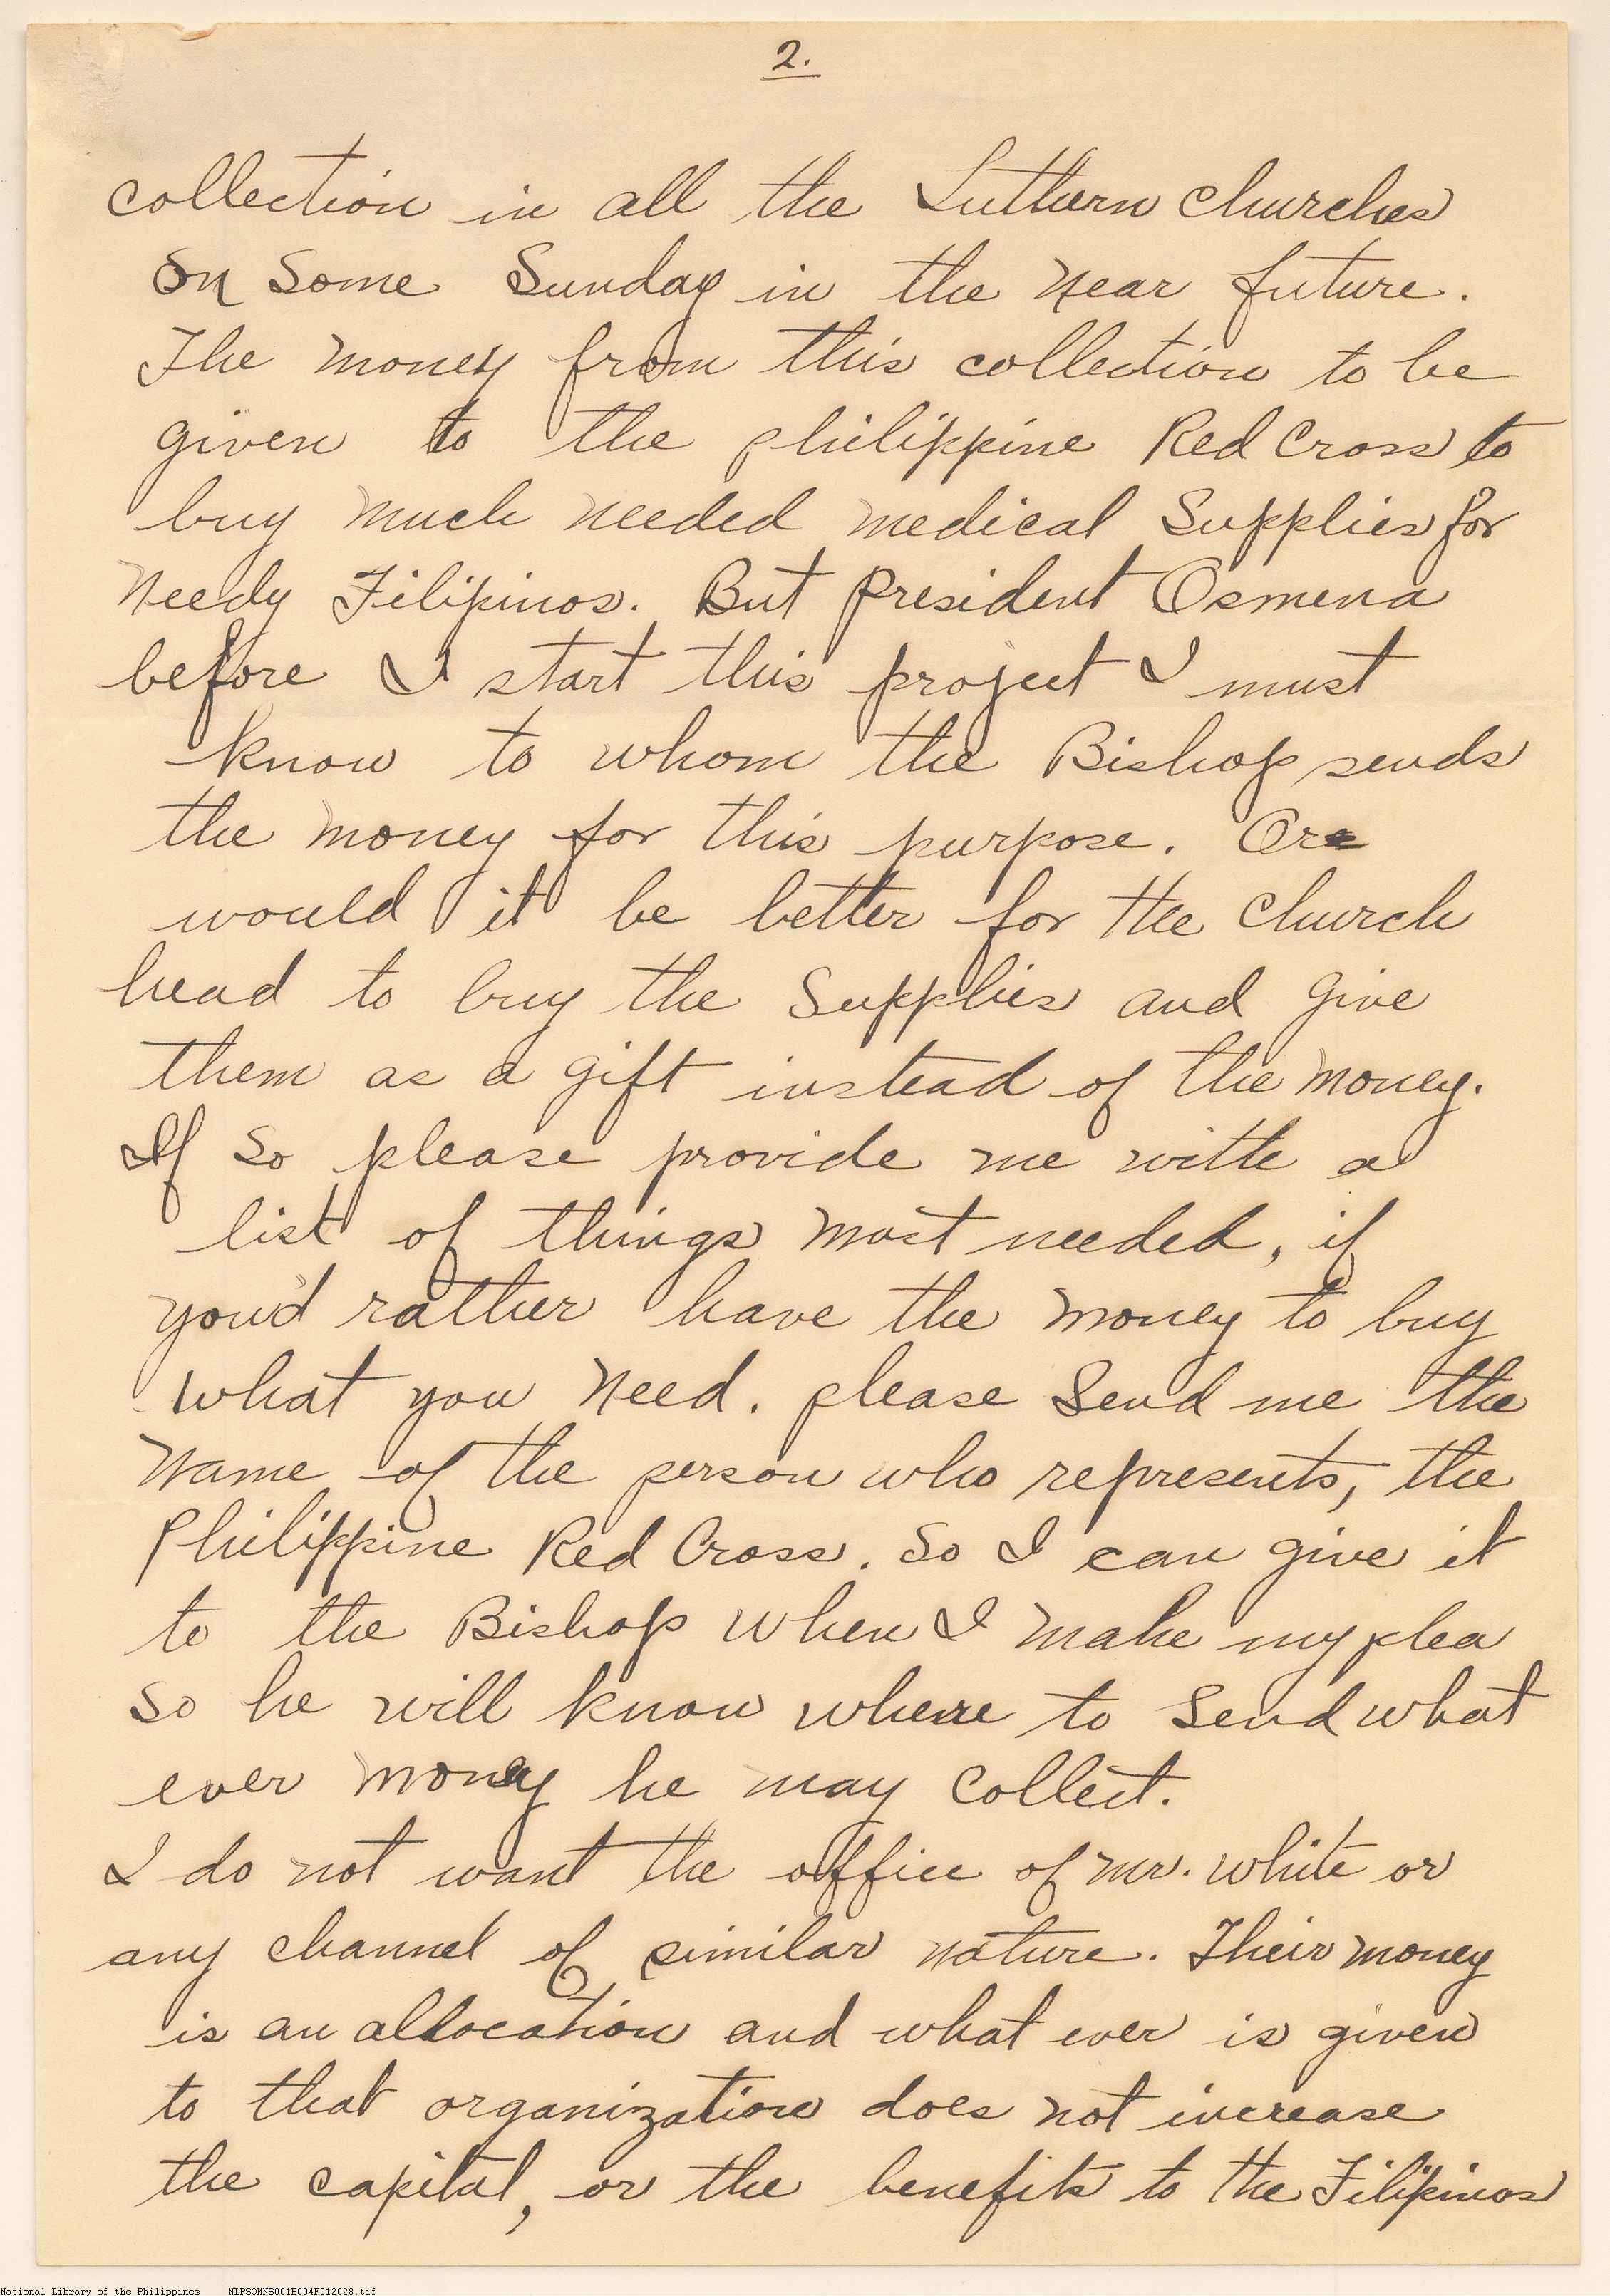 2.
collection in all the Luthern churches
on some Sunday in the near future.
The money from this collection to be
given to the philippine Red Cross to
buy much needed medical supplies for
needy Filipinos. But president Osmena
before I start this project I must
know to whom the Bishop sends
the money for this purpose. Or
would it be better for the church
head to buy the supplies and give
them as a gift instead of the money.
If so please provide me with a
list of things most needed, if
you'd rather have the money to buy
what you need. please send me the
name of the person who represents, the
Philippine Red Cross. So I can give it
to the Bishop when I make my plea
so he will know where to send what
ever money he may collect.
I do not want the office of mr. white or
any channel of similar nature. Their money
is an allocation and what ever is given
to that organization does not increase
the capital, or the benefits to the Filipinos
National Library of the Philippines NLPSOMNS001B004F012028.tif